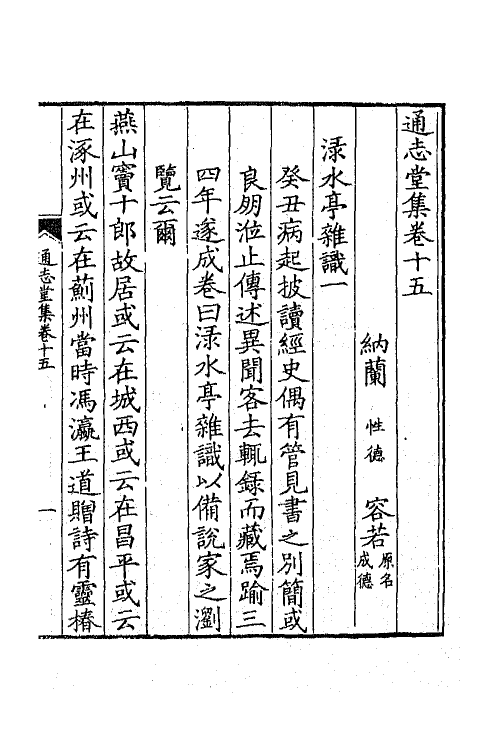 通志堂集卷十五
納蘭 性德 容若 原名成德
淥水亭雜識一
癸丑病起披讀經史偶有管見書之別簡或
良朋涖止傳述異聞客去輒錄而藏焉踰三
四年遂成卷曰淥水亭雜識以備說家之瀏
覽云爾
燕山竇十郎故居或云在城西或云在昌平或云
在涿州或云在薊州當時馮瀛王道贈詩有靈椿
通志堂集卷十五
一